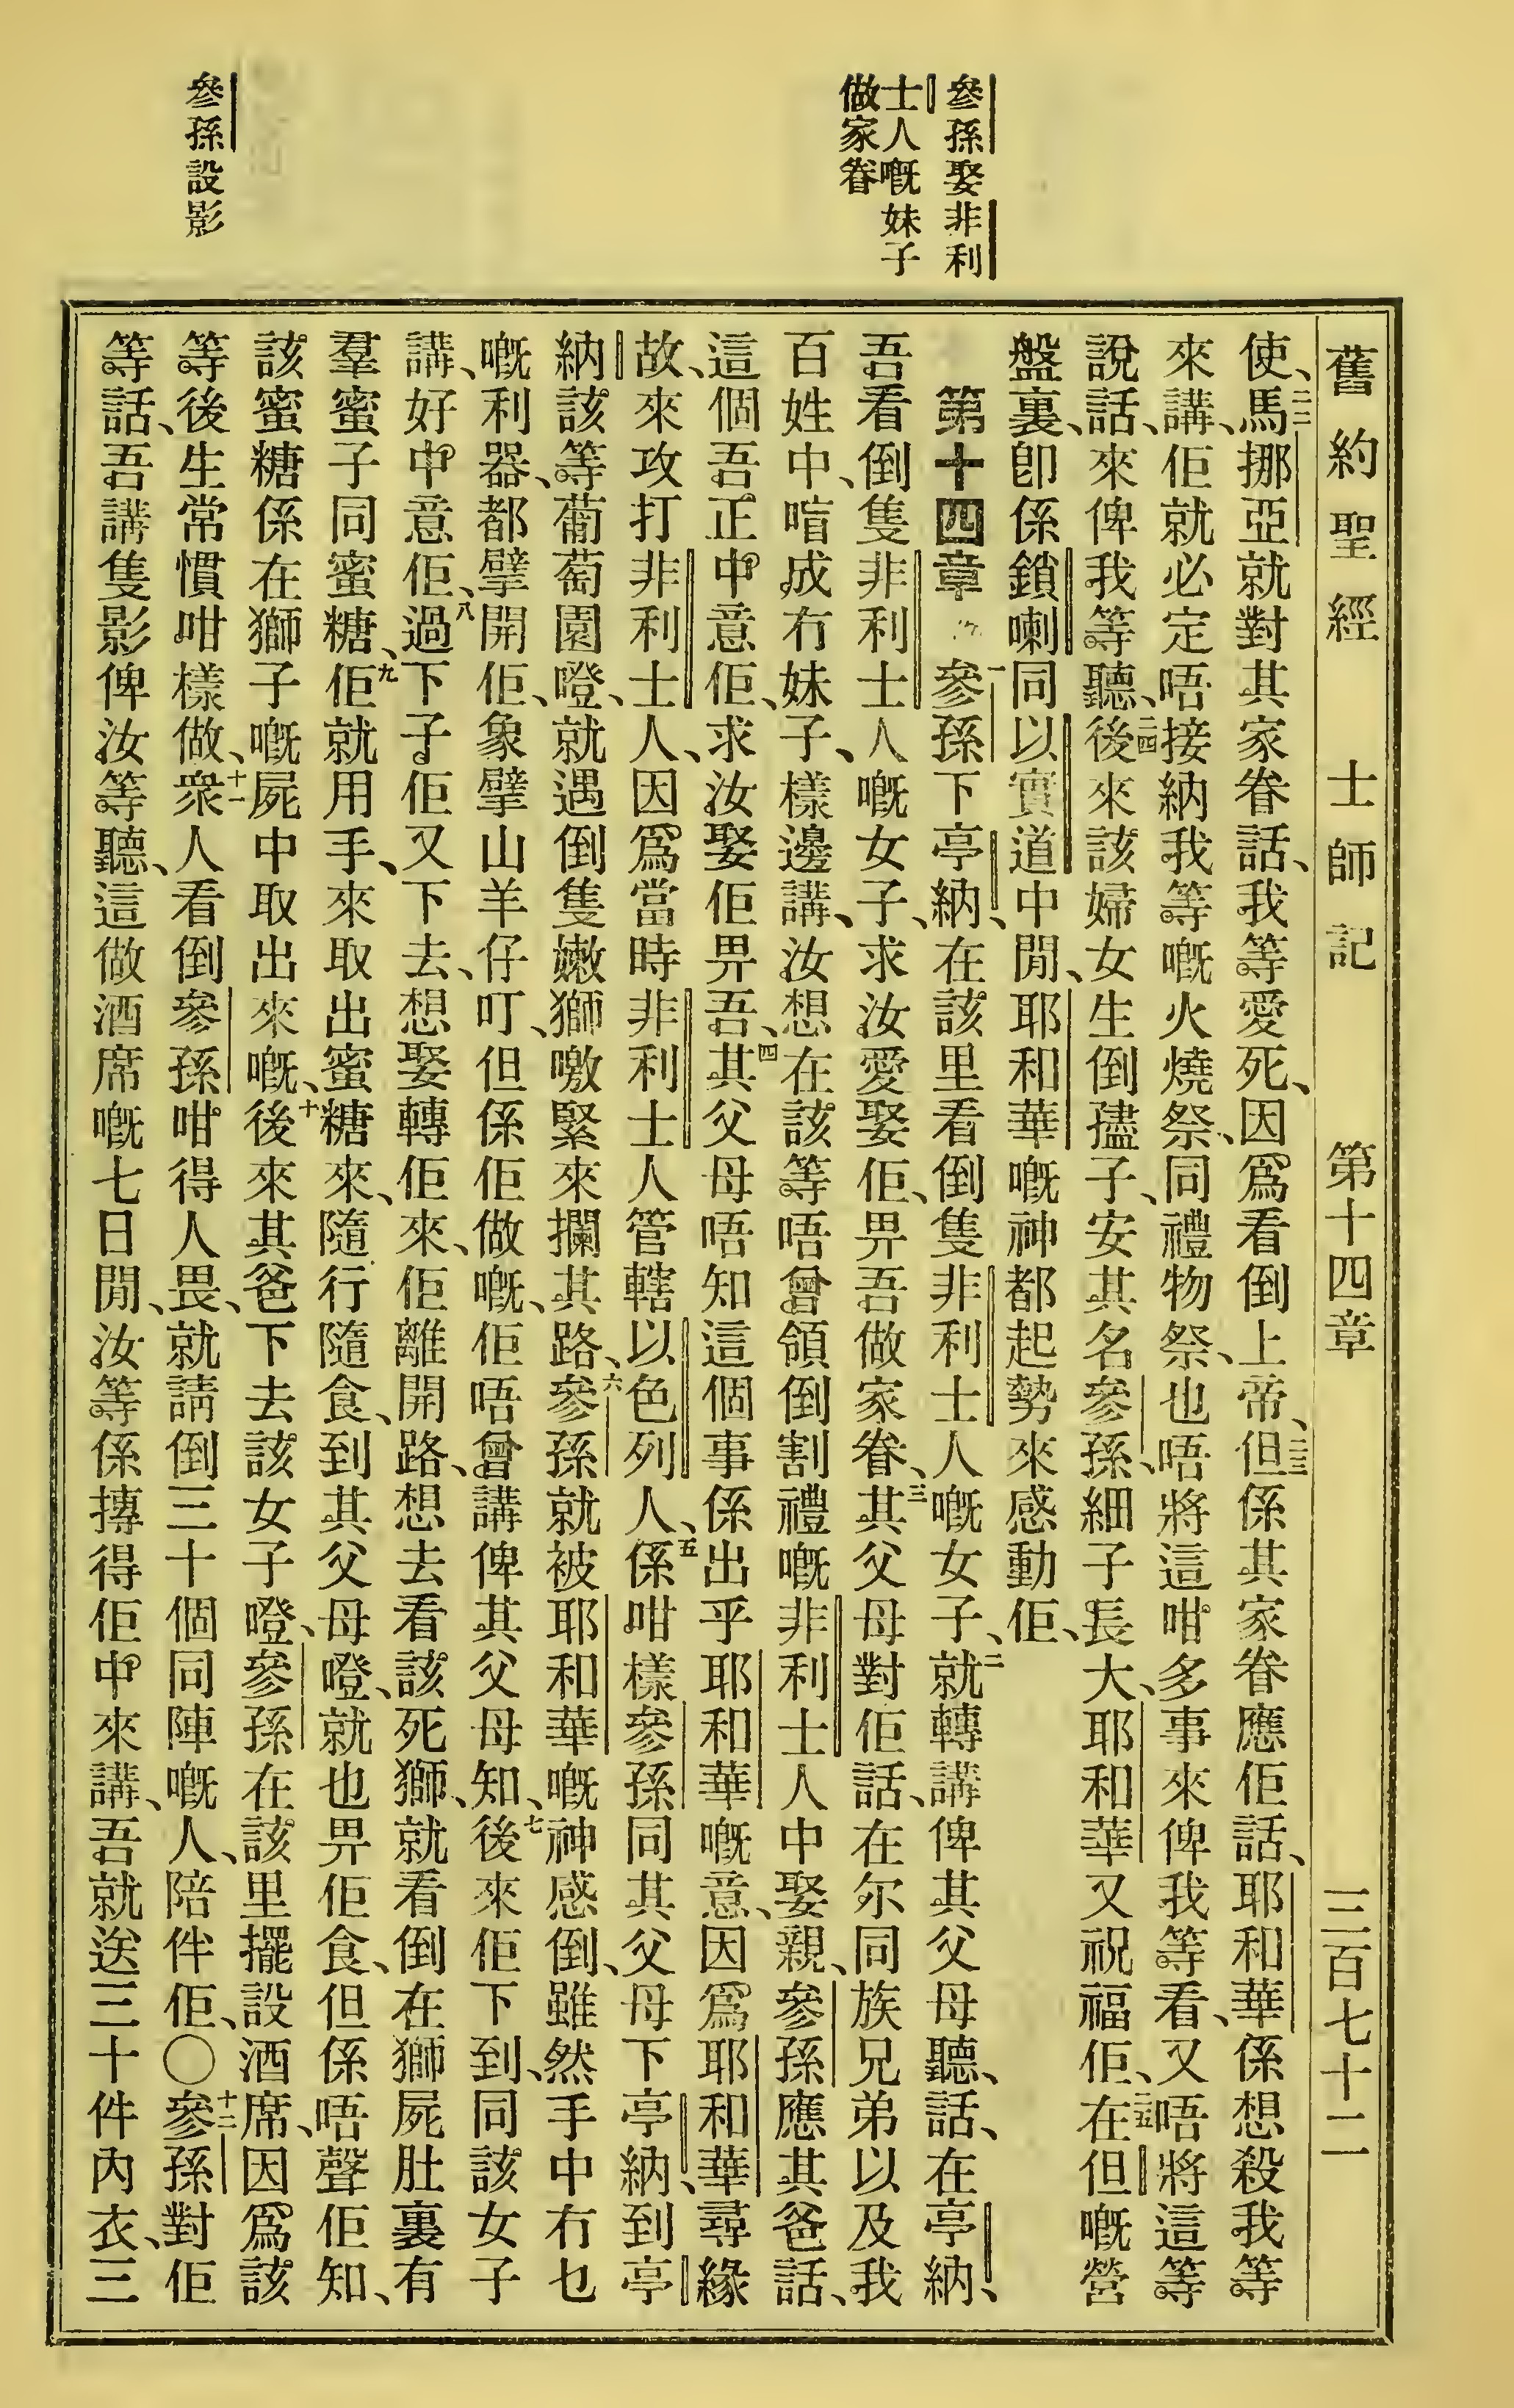 舊約聖經　士師記　第十四章　三百七十二
參孫娶非利
士人嘅妹子
做家眷
參孫設影
使、二二馬挪亞就對其家眷話、我等愛死、因爲看倒上帝、二三但係其家眷應佢話、耶和華係想殺我等
來講、佢就必定唔接納我等嘅火燒祭、同禮物祭、也唔將這咁多事來俾我等看、又唔將這等
說話、來俾我等聽、二四後來該婦女生倒孻子、安其名參孫、細子長大、耶和華又祝福佢、二五在但嘅營
盤裏、卽係鎖喇同以實道中閒、耶和華嘅神都起勢來感動佢、
第十四章　一參孫下亭納、在該里看倒隻非利士人嘅女子、二就轉講俾其父母聽、話、在亭納、
吾看倒隻非利士人嘅女子、求汝愛娶佢、畀吾做家眷、三其父母對佢話、在尔同族兄弟以及我
百姓中、喑成冇妹子、樣邊講、汝想在該等唔曾領倒割禮嘅非利士人中娶親、參孫應其爸話、
這個吾正中意佢、求汝娶佢畀吾、四其父母唔知這個事係出乎耶和華嘅意、因爲耶和華尋緣
故、來攻打非利士人、因爲當時非利士人管轄以色列人、五係咁樣參孫同其父母下亭納、到亭
納該等葡萄園噔、就遇倒隻嫩獅噭緊來攔其路、六參孫就被耶和華嘅神感倒、雖然手中冇乜
嘅利器、都擘開佢、象擘山羊仔叮、但係佢做嘅、佢唔曾講俾其父母知、七後來佢下到、同該女子
講、好中意佢、八過下子佢又下去、想娶轉佢來、佢離開路、想去看該死獅、就看倒在獅屍肚裏有
羣蜜子同蜜糖、九佢就用手、來取出蜜糖來、隨行隨食、到其父母噔、就也畀佢食、但係唔聲佢知、
該蜜糖係在獅子嘅屍中取出來嘅、十後來其爸下去該女子噔、參孫在該里擺設酒席、因爲該
等後生常慣咁樣做、十一衆人看倒參孫咁得人畏、就請倒三十個同陣嘅人、陪伴佢、〇十二參孫對佢
等話、吾講隻影俾汝等聽、這做酒席嘅七日閒、汝等係摶得佢中來講、吾就送三十件內衣、三